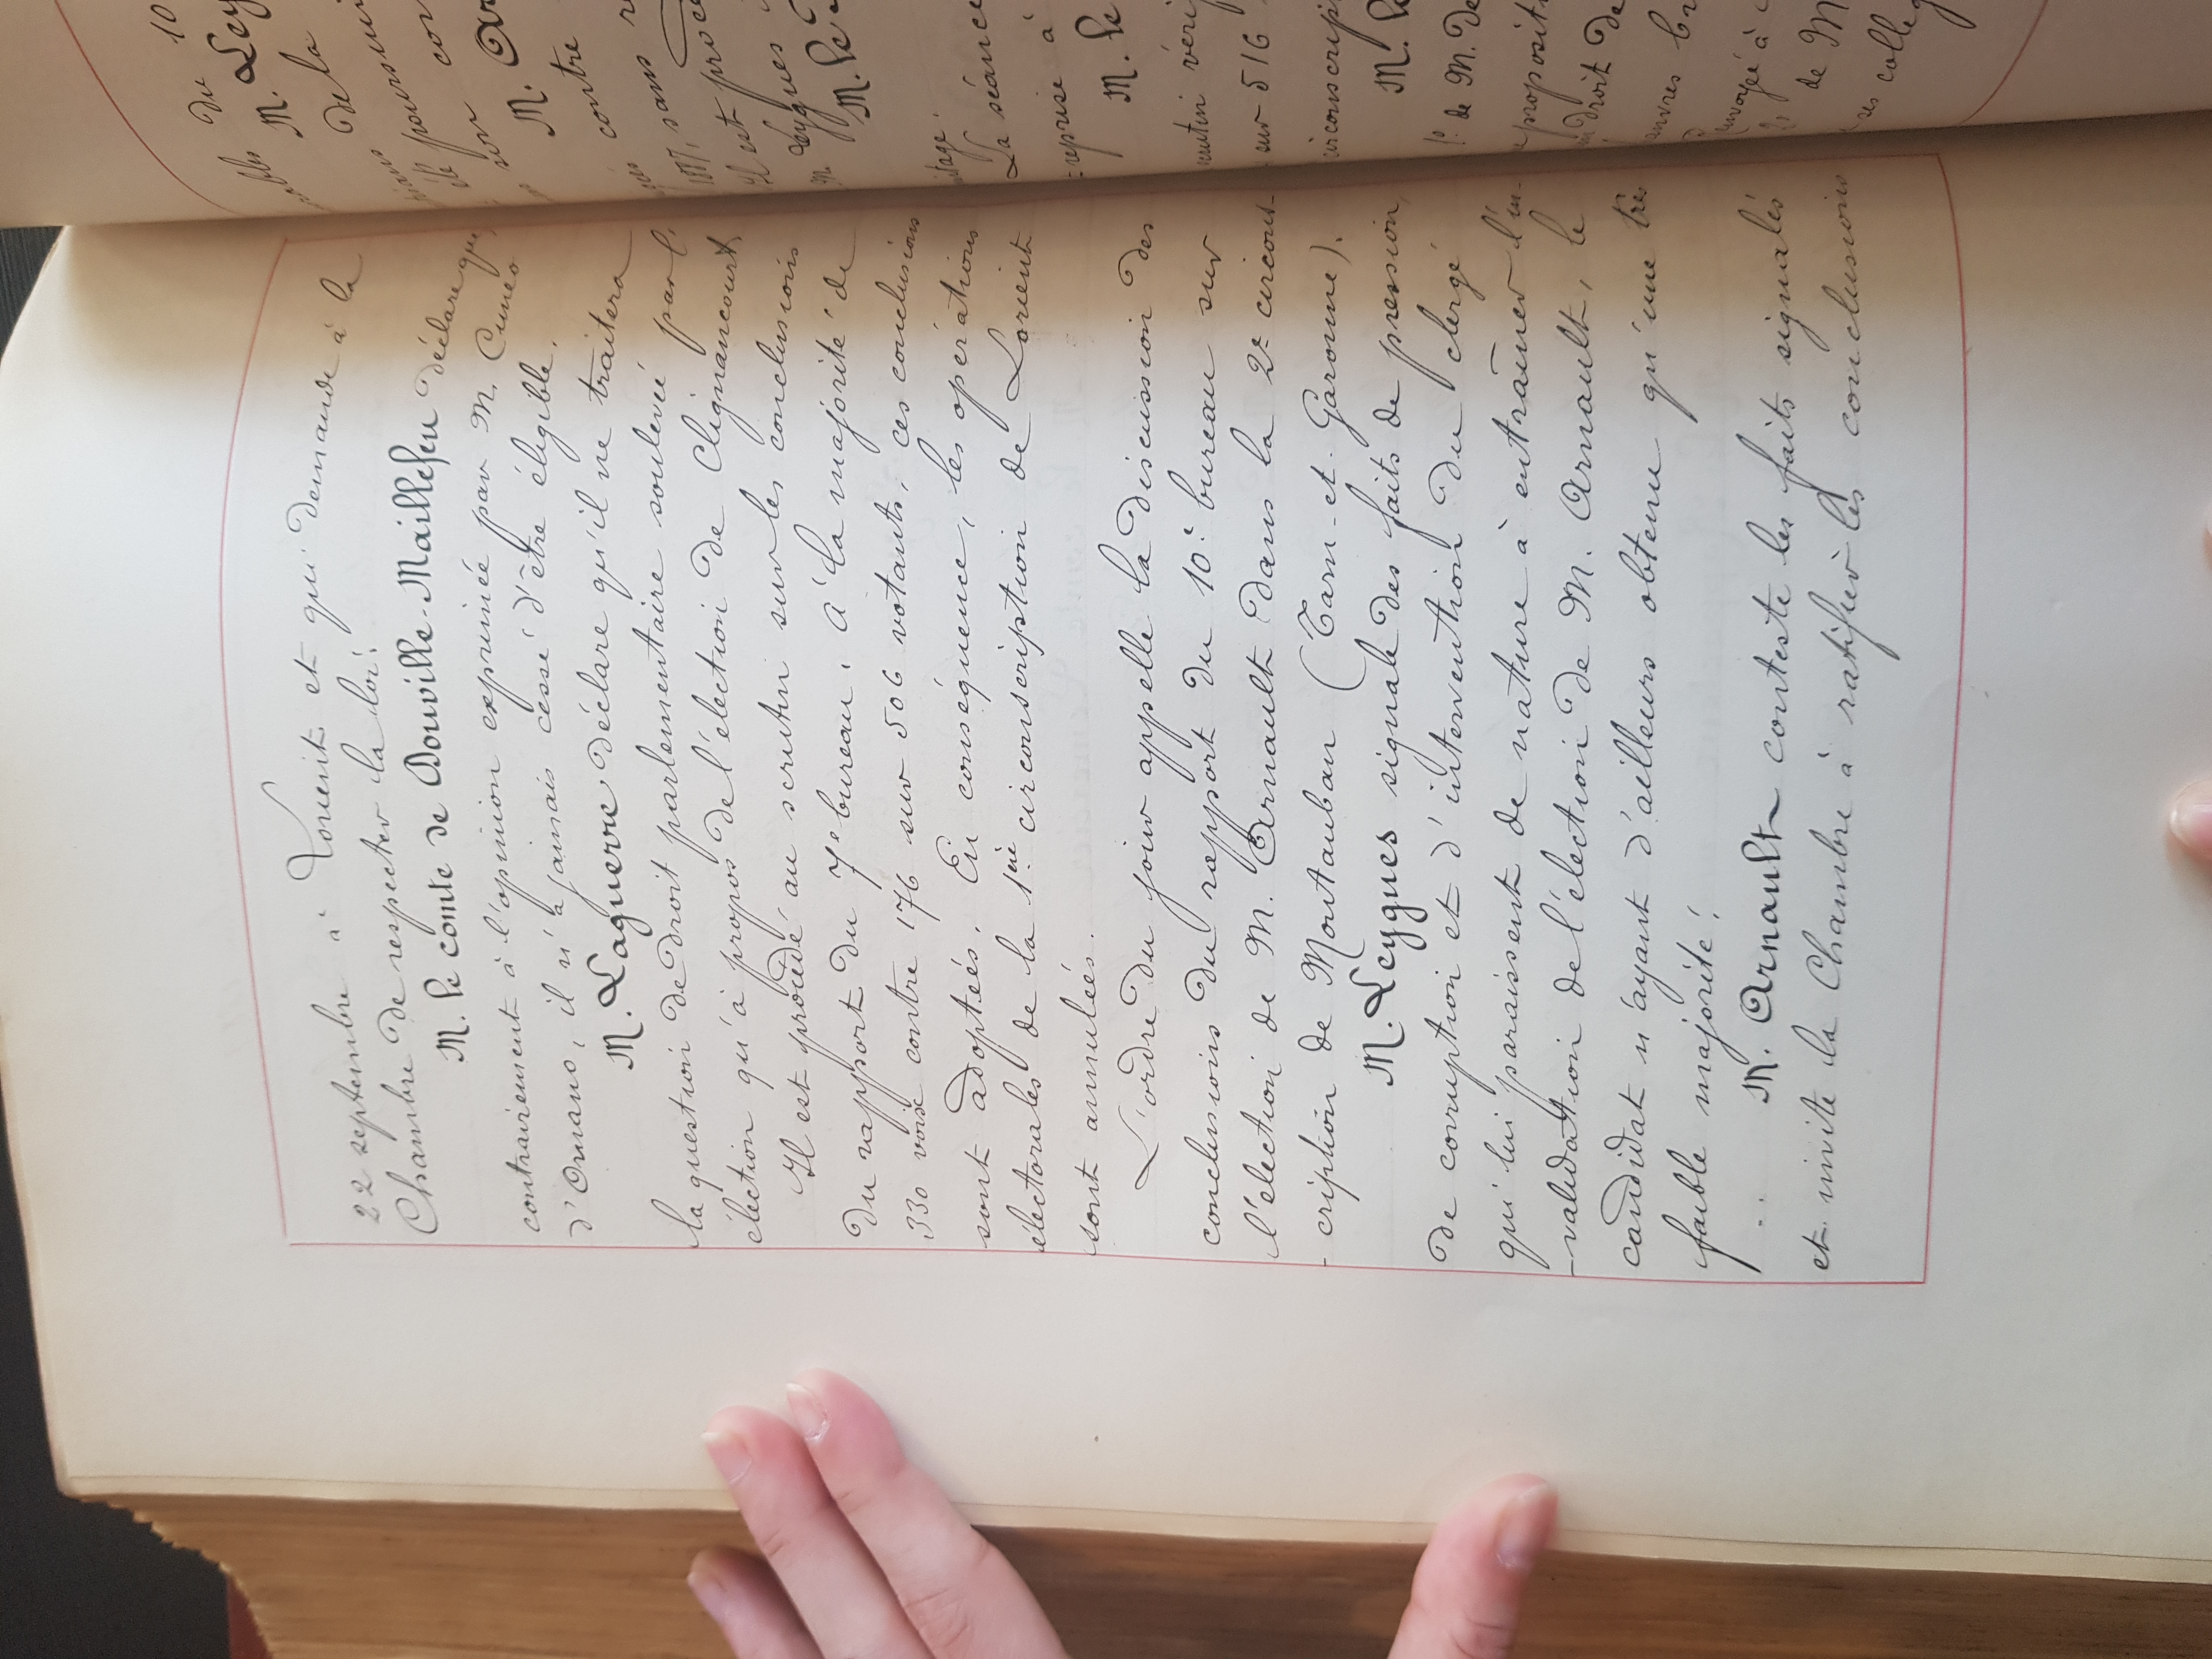 22 septembre à Lorient et qui demande à la
Chambre de respecter la loi.
M. le comte de Douville-Maillefeu déclare que,
contrairement à l'opinion exprimée par M. Cuneo
d'Ornano, il n'a jamais cessé d'être éligible.
M. Laguerre déclare qu'il ne traitera
la question de droit parlementaire soulevée par l'
élection qu'à propos de l'élection de Clignancourt.
Il est procédé au scrutin sur les conclusions
du rapport du 7e bureau. A la majorité de
330 voix contre 176 sur 506 votants, ces conclusions
sont adoptées. En conséquence, les opérations
électorales de la 1ère circonscription de Lorient
sont annulées.
L'ordre du jour appelle la discussion des
conclusions du rapport du 10e bureau sur
l'élection de M. Arnault dans la 2e circons-
-cription de Montauban (Tarn-et-Garonne).
M. Leygues signale des faits de pression,
de corruption et d'intervention du clergé
qui lui paraissent de nature à entraîner l'in-
-validation de l'élection de M. Arnault, le
candidat n'ayant d'ailleurs obtenu qu'une très
faible majorité.
M. Arnault conteste les faits signalés
et invite la Chambre à ratifier les conclusions
du 10
M. Ley
de la
poursui
son con
M. Ar
contre
1887, sans
Il est procé
M. Leygues
M. le
La séance
reprise à
M. le
sur 516
M. le
1° de M. De
droit de
de M